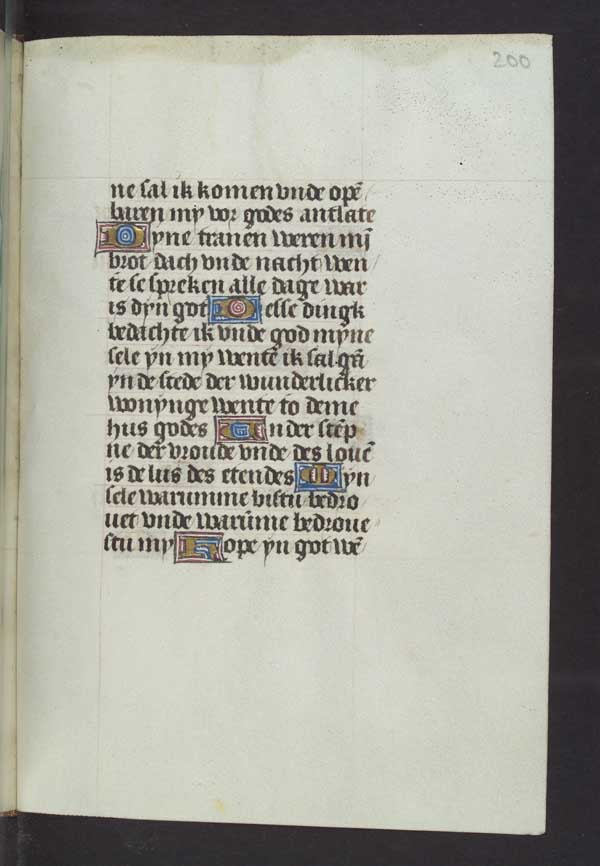 200
ne sal ik komen vnde opē
baren my vor godes antlate
Myne tranen weren mȳ
brot dach vnde nacht wen
te se spreken alle dage war
is dyn got Desse dingk
bedachte ik vnde god myne
sele yn my wentē ik sal gā
yn de stede der wunderlicker
wonynge wente to deme
hus godes In der stēp
ne der vroude vnde des louē
is de lus des etendes Myn
sele warumme bistu bedro
uet vnde warūme bedroue
stu my Hope yn got wē